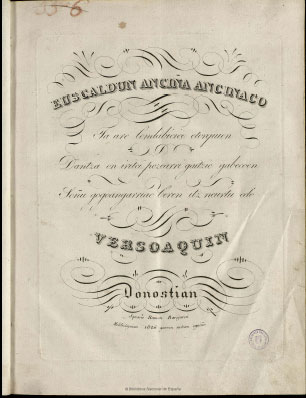 35-6
EUSCALDUN ANCIÑA ANCINACO
Ta are lendabicico etorquien
Dantza on iritci pozcarri gaitzic gabecoen
Soñu gogoangarriac beren itz neurtu edo
VERSOAQUIN
Donostian
Ignacio Ramon Baroja
1826
Biblioteca Nacional de España